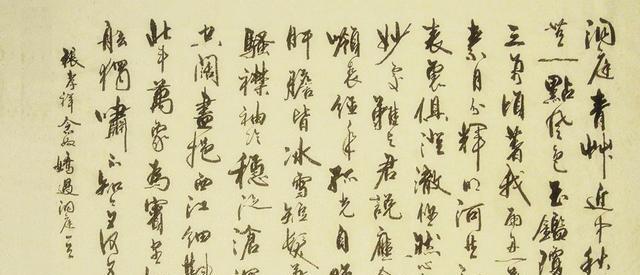 洞庭青艸近中秋
無一點風色玉鑑瓊
三萬頃著我扁舟一
素月分輝明河共
表裏俱澄澈悠然心
妙處難與君說應
嶺表經年孤光自照
肝膽皆冰雪短髮蕭
騷襟袖冷穩泛滄溟
空闊盡挹西江細斟
北斗萬象為賓客
舷獨嘯不知今夕何
張孝祥念奴嬌過洞庭一首